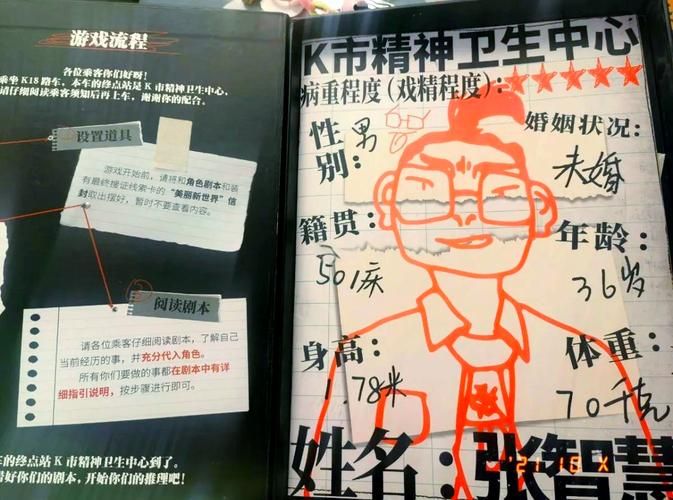 游戏流程
各位乘客你们好呀!
乘坐 K18 路车,本车的终点站是 K 市精神卫生中心,
请仔细阅读乘客须知后再上车,谢谢你的配合。
设置道具
游戏开始前,请将和角色剧本和装
有最终搜证线索卡的“美丽新世界”信
封取出摆好,暂时不要查看内容。
阅读剧本
请各位乘客仔细阅读剧本,了解自己
当前经历的事,并充分代入角色。
所有你们要做的事都在剧本中有详
细指引说明,按步骤进行即可。
车的终点站 K 市精神卫生中心到了。
好你们的剧本,开始你们的推理吧!
K市精神卫生中心
病重程度(戏精程度):
性别:男
婚姻状况:
未婚
籍贯:
501床
年龄:
36岁
身高:
1.78米
体重:
70千克
张
姓名:张智慧